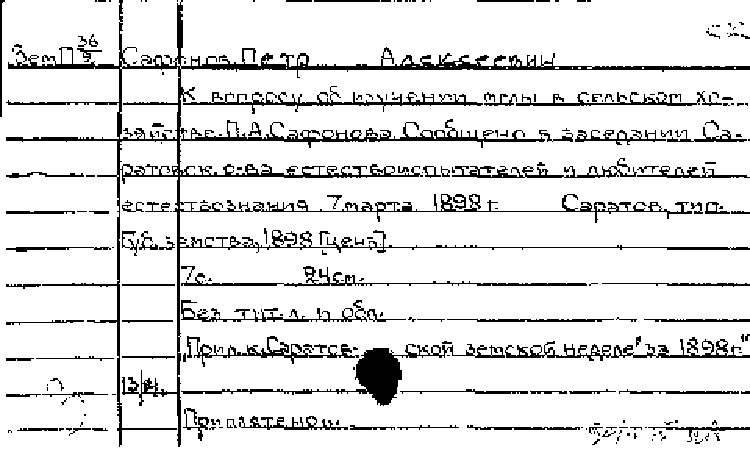 ЗемП 36/9 Сафонов, Петр Алексеевич
К вопросу об изучении мглы в сельском хо-
зяйстве П.А.Сафонова. Сообщено в заседании Са-
ратовск. о-ва естествоиспытателей и любителей
естествознания 7 марта 1898 г. Саратов, тип.
Губ. земства, 1898 [цена].
7с. 24см.
Без тит.л. и обл.
"Прил. к, Саратов- ской земской неделе" за 1898г"
13/